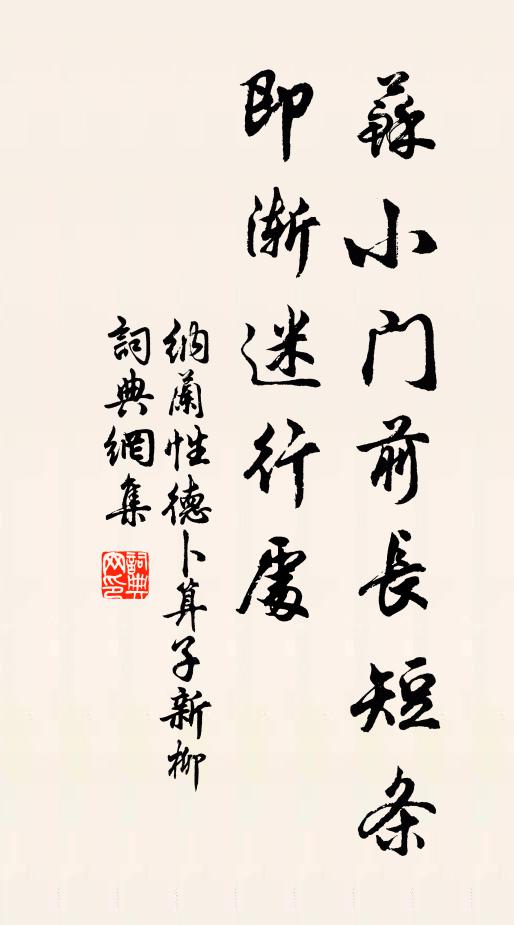 蘇小門前長短条
即漸迷行處
納蘭性德卜算子新柳
詞典網集
詞典網印